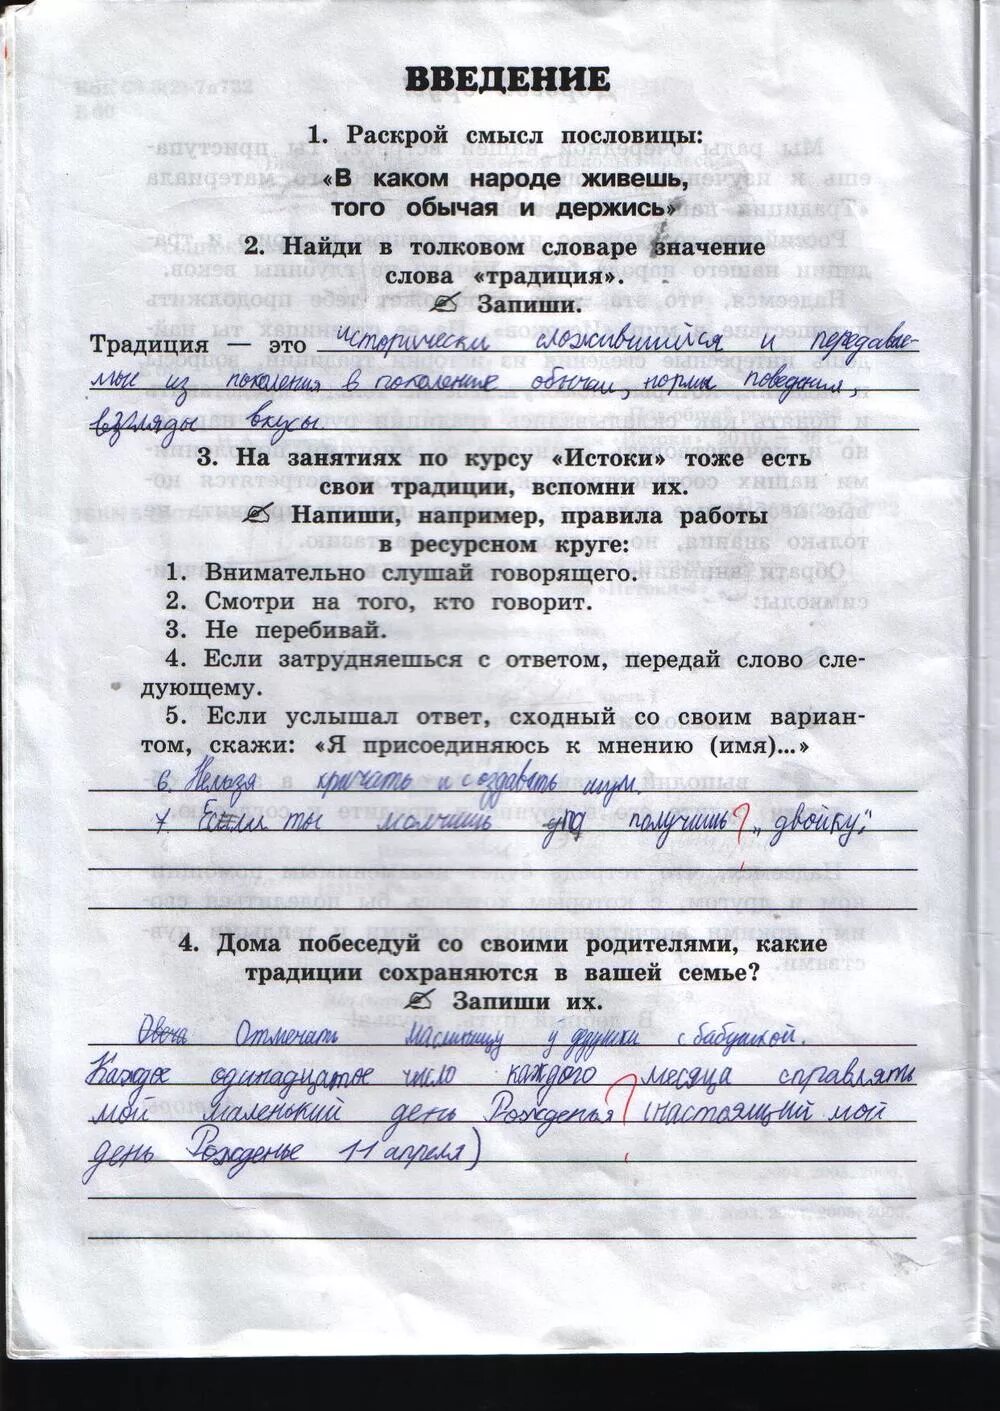 ВВЕДЕНИЕ
1. Раскрой смысл пословицы:
«В каком народе живешь,
того обычая и держись»
2. Найди в толковом словаре значение
слова «традиция».
Запиши.
Традиция — это исторически сложившийся и передавае-
мые из поколения в поколение обычаи, нормы поведения,
взгляды вкусы.
3. На занятиях по курсу «Истоки» тоже есть
свои традиции, вспомни их.
Напиши, например, правила работы
в ресурсном круге:
1. Внимательно слушай говорящего.
2. Смотри на того, кто говорит.
3. Не перебивай.
4. Если затрудняешься с ответом, передай слово сле-
дующему.
5. Если услышал ответ, сходный со своим вариан-
том, скажи: «Я присоединяюсь к мнению (имя)...»
6. Нельзя кричать и создавать шум.
7. Если ты молчишь получишь? „двойку".
4. Дома побеседуй со своими родителями, какие
традиции сохраняются в вашей семье?
Запиши их.
Отмечать у с бабушкой.
Каждое одинадцатое число каждого месяца справлять
мой маленький день Рожденья? (настоящий мой
день Рожденье 11 апреля)